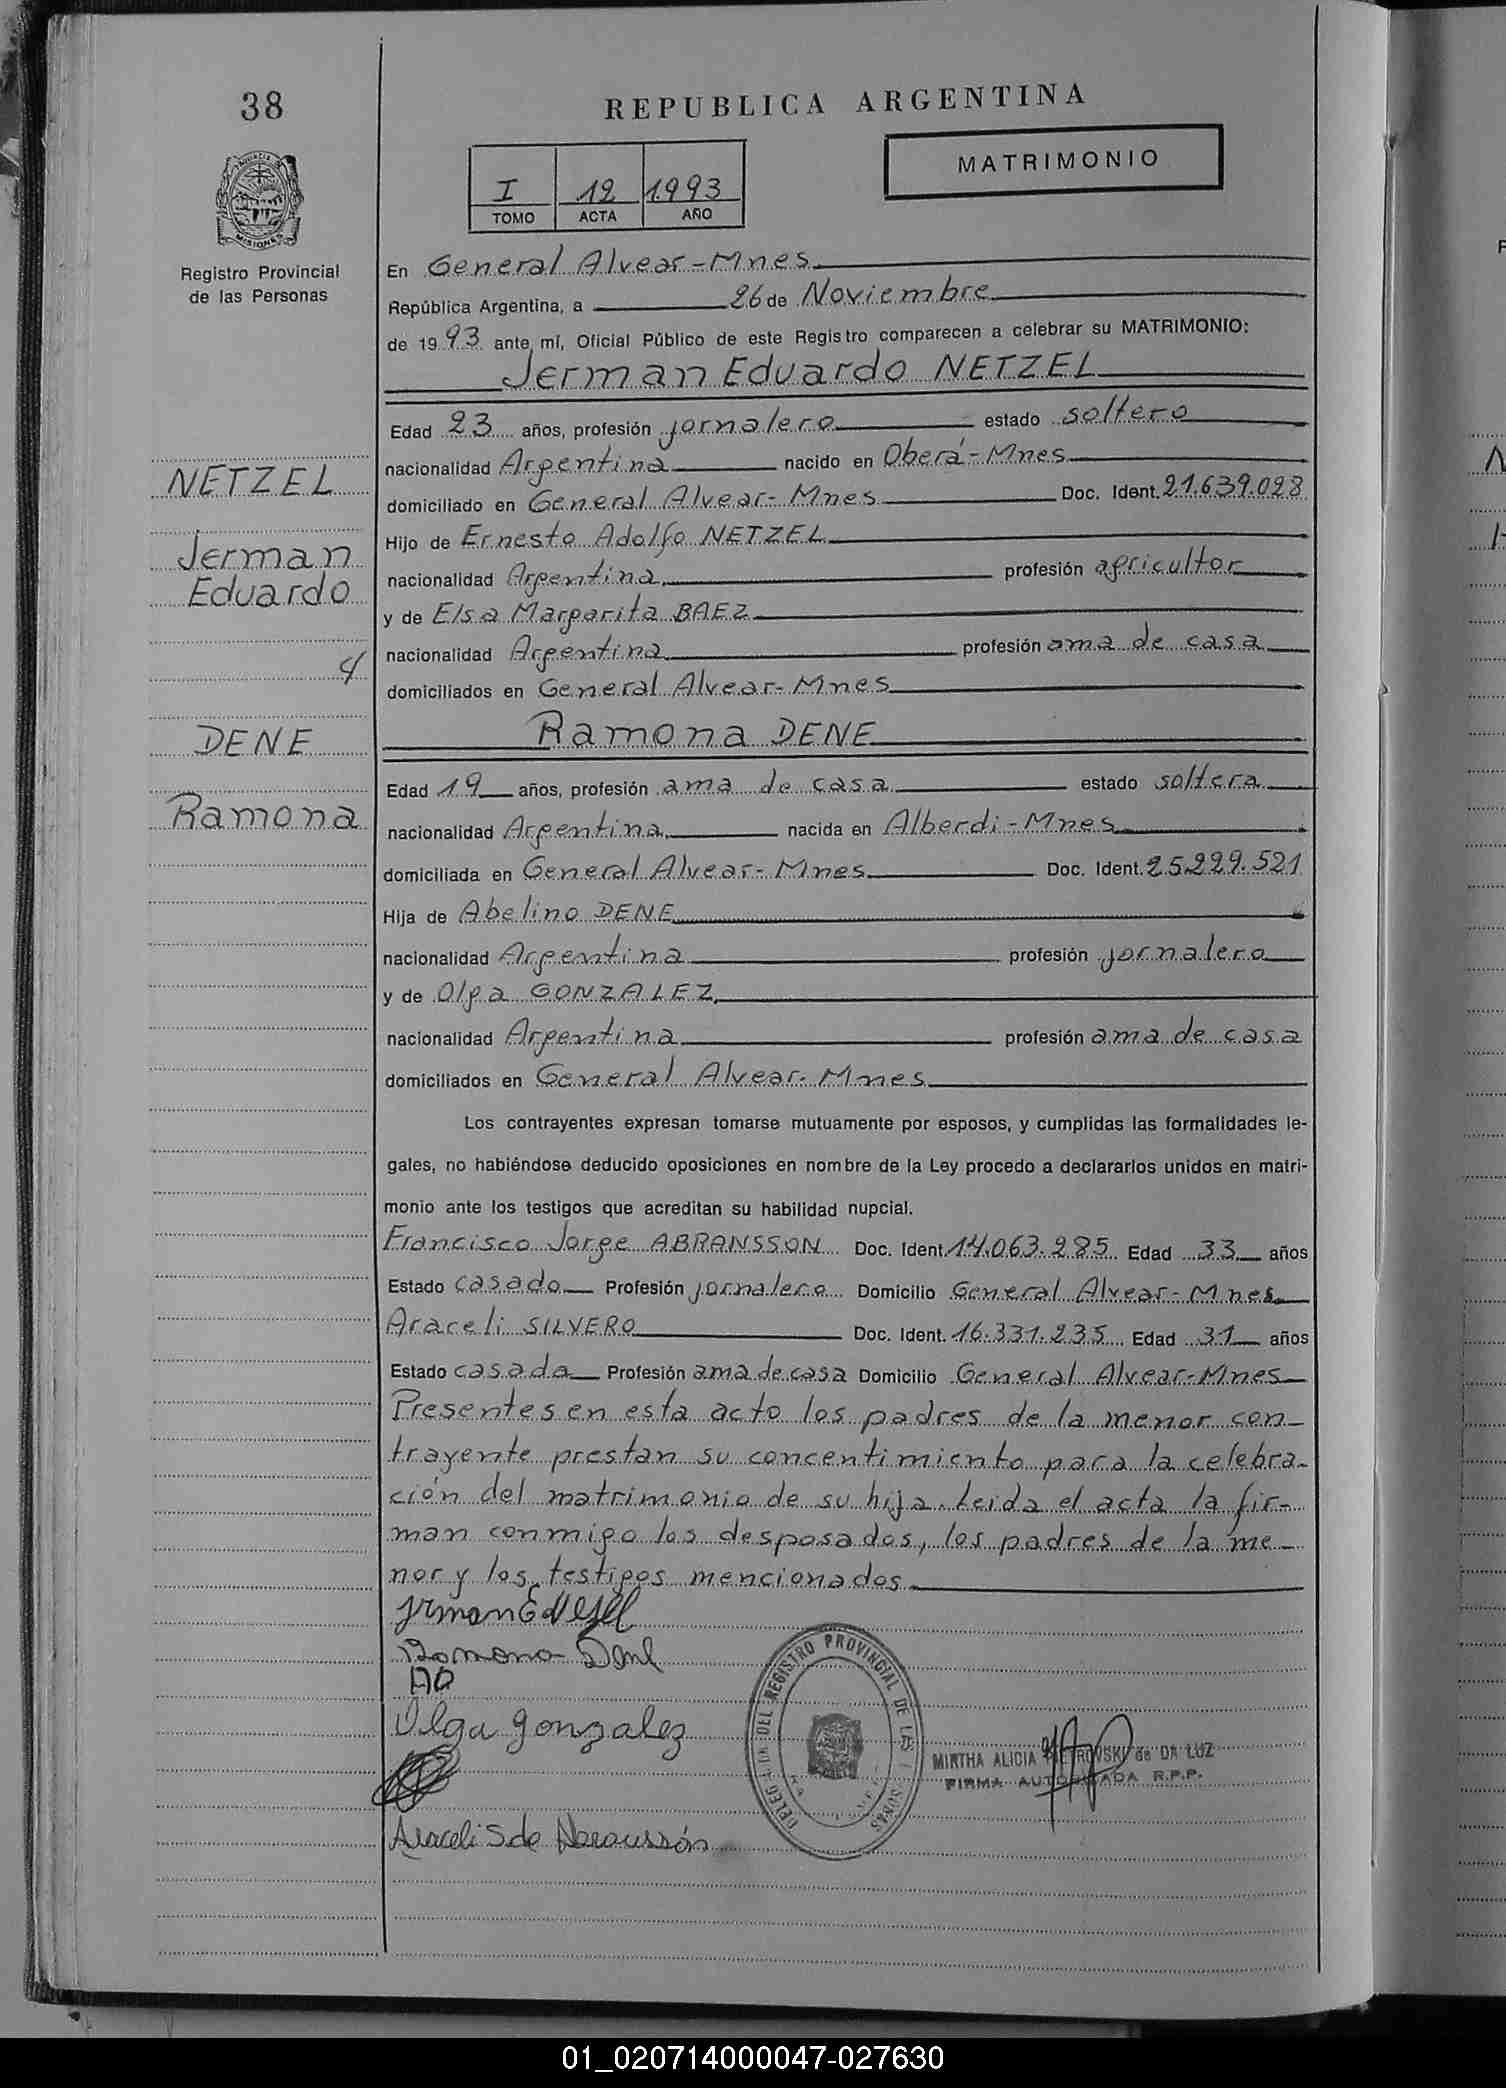 38
REPUBLICA ARGENTINA
MATRIMONIO
I 12 1993
TOMO ACTA AÑO
MISIONES
Registro Provincial
de las Personas
En General Alvear-Mnes
República Argentina, a 26 de Noviembre
de 1993 ante mí, Oficial Público de este Registro comparecen a celebrar su MATRIMONIO:
Jerman Eduardo NETZEL
Edad 23 años, profesión jornalero estado soltero
nacionalidad Argentina nacido en Oberá-Mnes
domiciliado en General Alvear-Mnes Doc. Ident. 21.639.028
Hijo de Ernesto Adolfo NETZEL
nacionalidad Argentina profesión agricultor
y de Elsa Margarita BAEZ
nacionalidad Argentina profesión ama de casa
domiciliados en General Alvear-Mnes
NETZEL
Jerman
Eduardo
y
DENE
Ramona
Ramona DENE
Edad 19 años, profesión ama de casa estado soltera
nacionalidad Argentina nacida en Alberdi-Mnes
domiciliada en General Alvear-Mnes Doc. Ident. 25.229.521
Hija de Abelino DENE
nacionalidad Argentina profesión jornalero
y de Olga GONZALEZ
nacionalidad Argentina profesión ama de casa
domiciliados en General Alvear-Mnes
Los contrayentes expresan tomarse mutuamente por esposos, y cumplidas las formalidades le-
gales, no habiéndose deducido oposiciones en nombre de la Ley procedo a declararlos unidos en matri-
monio ante los testigos que acreditan su habilidad nupcial.
Francisco Jorge ABRANSSON Doc. Ident. 14.063.285 Edad 33 años
Estado casado Profesión jornalero Domicilio General Alvear-Mnes
Araceli SILVERO Doc. Ident. 16.331.235 Edad 31 años
Estado casada Profesión ama de casa Domicilio General Alvear-Mnes
Presentes en esta acto los padres de la menor con-
trayente prestan su concentimiento para la celebra-
ción del matrimonio de su hija. Leida el acta la fir-
man conmigo los desposados, los padres de la me-
nor y los testigos mencionados
Ramona Dene
AD
Olga Gonzalez
DEL REGISTRO PROVINCIAL DE LAS
MIRTHA ALICIA de DA LUZ
FIRMA AUTORIZADA R.P.P.
Araceli S de
01_020714000047-027630